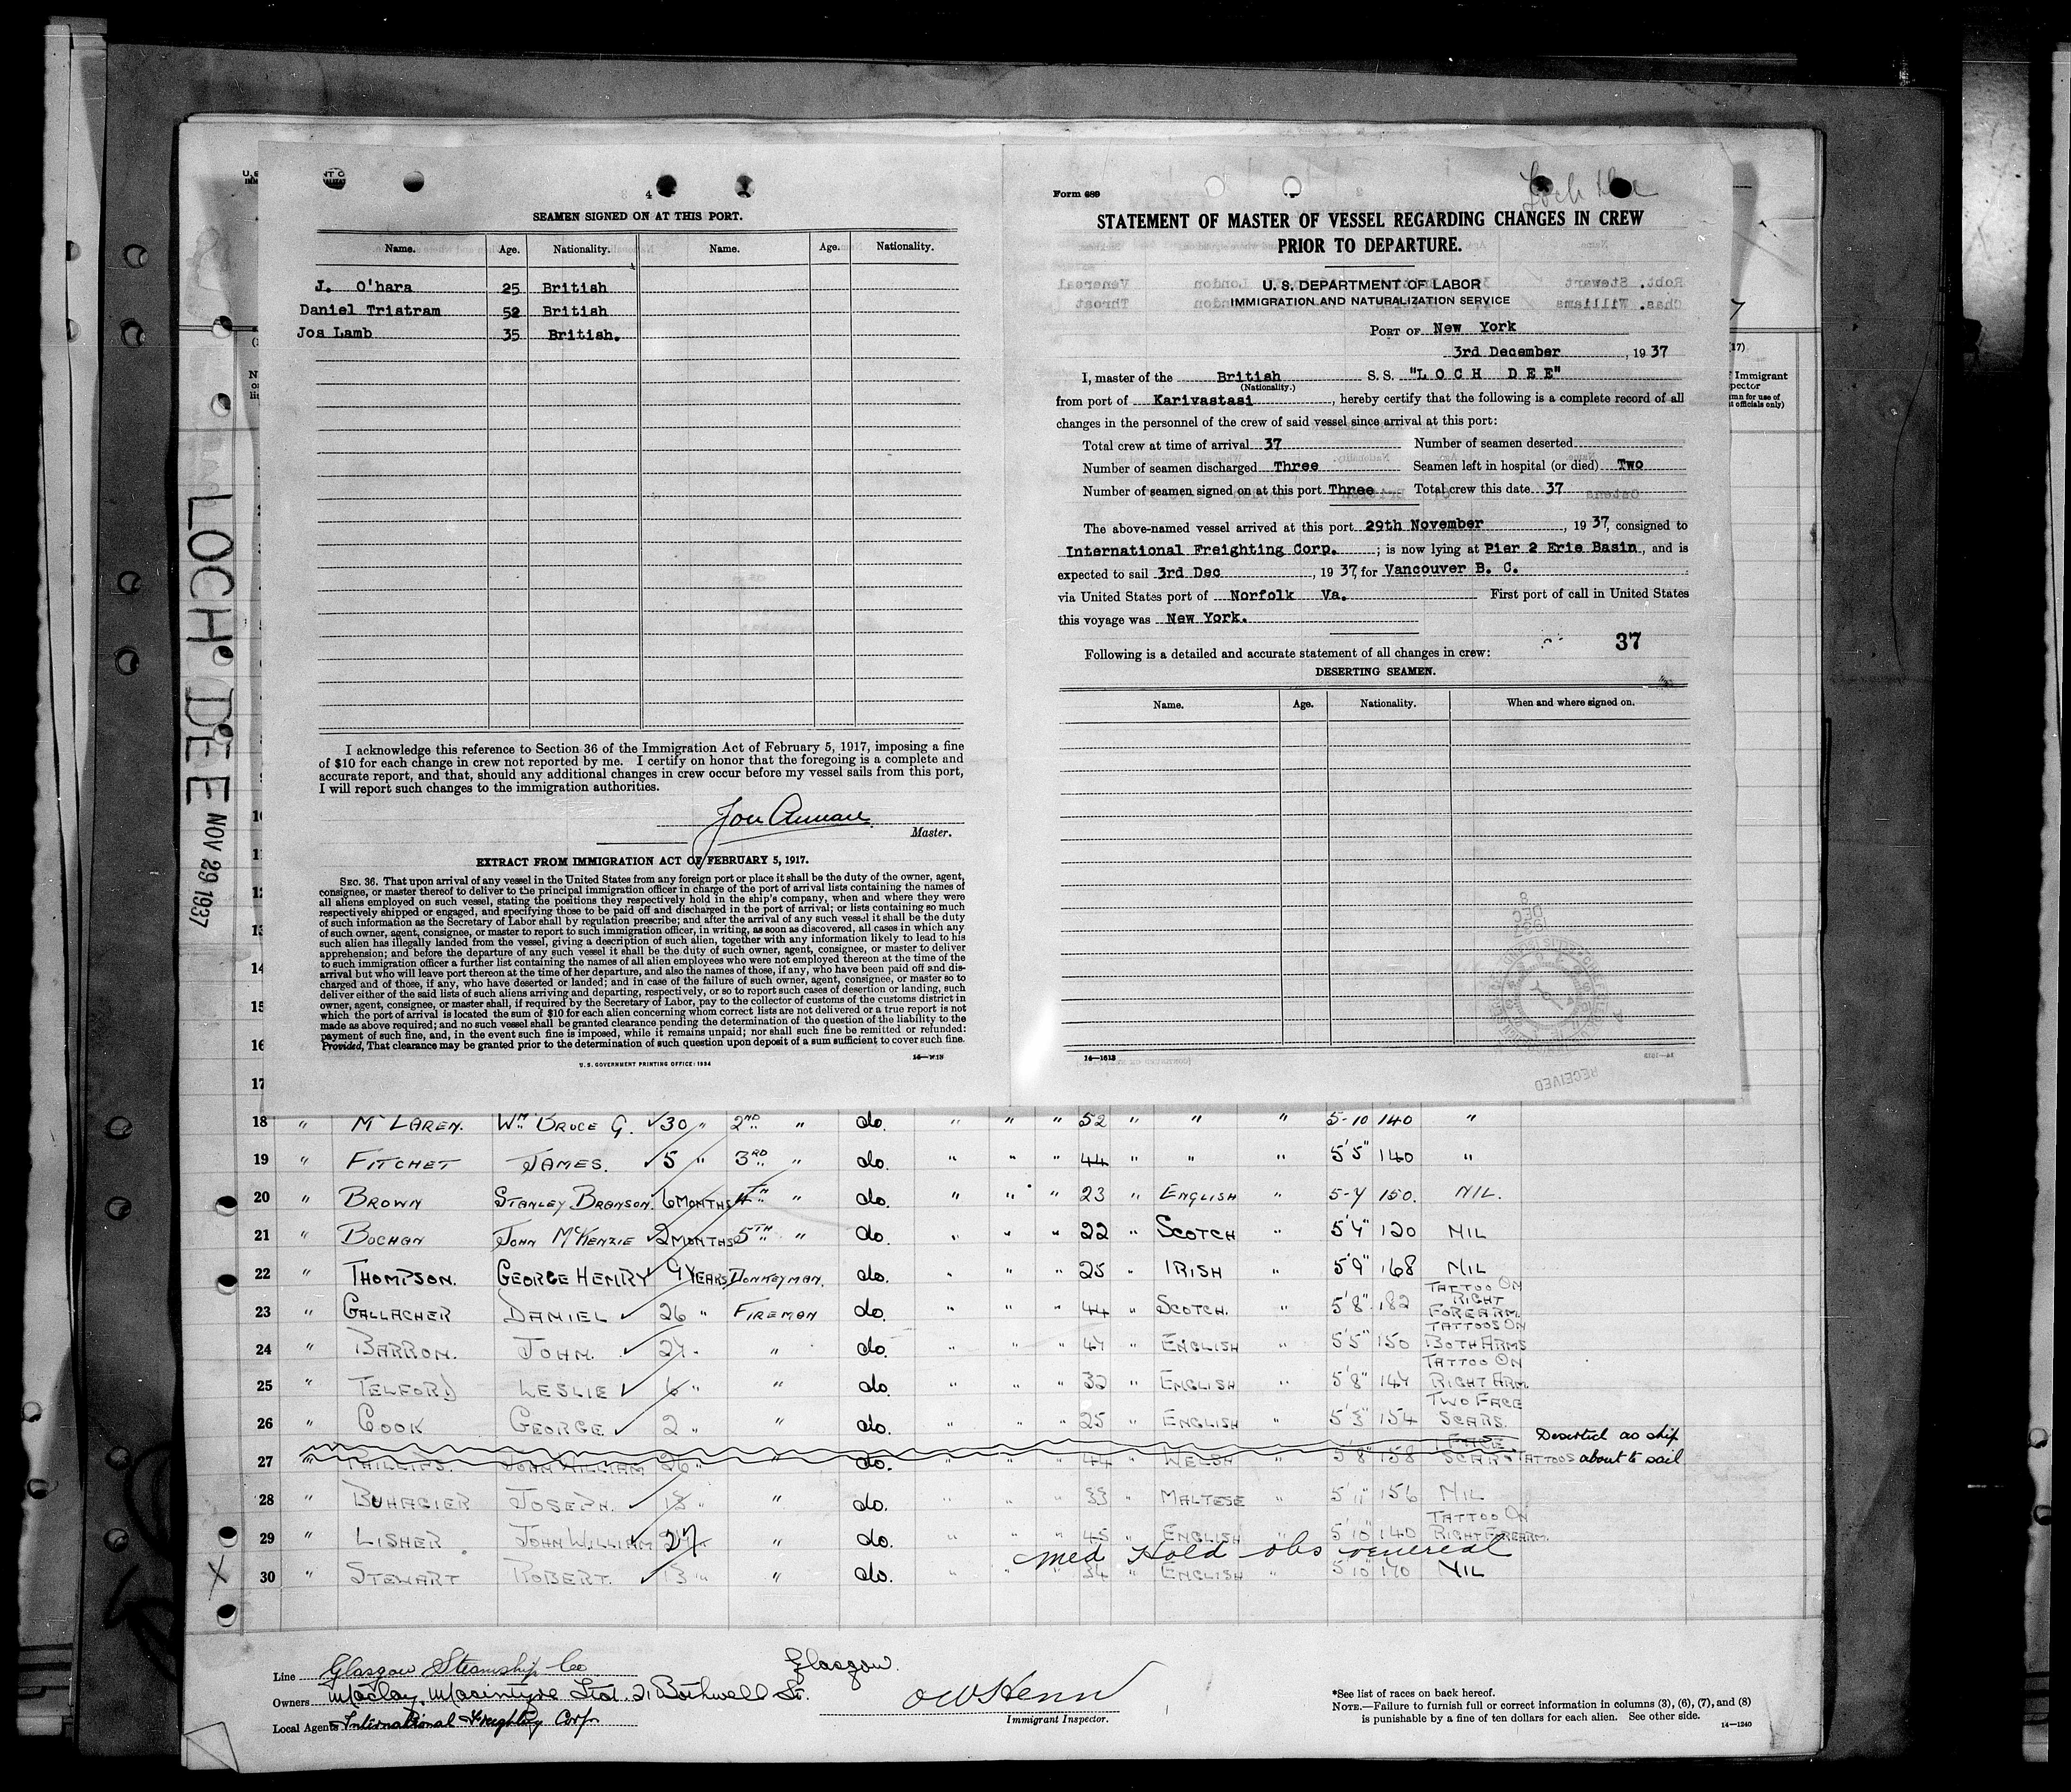 4
SEAMEN SIGNED ON AT THIS PORT.
Name. Age. Nationality. Name. Age. Nationality.
J. O'hara 25 British
Daniel Tristram 52 British
Jos Lamb 35 British.
I acknowledge this reference to Section 36 of the Immigration Act of February 5, 1917, imposing a fine
of $10 for each change in crew not reported by me. I certify on honor that the foregoing is a complete and
accurate report, and that, should any additional changes in crew occur before my vessel sails from this port,
I will report such changes to the immigration authorities.
Master.
EXTRACT FROM IMMIGRATION ACT OF FEBRUARY 5, 1917.
SEC. 36. That upon arrival of any vessel in the United States from any foreign port or place it shall be the duty of the owner, agent,
consignee, or master thereof to deliver to the principal immigration officer in charge of the port of arrival lists containing the names of
all aliens employed on such vessel, stating the positions they respectively hold in the ship's company, when and where they were
respectively shipped or engaged, and specifying those to be paid off and discharged in the port of arrival; or lists containing so much
of such information as the Secretary of Labor shall by regulation prescribe; and after the arrival of any such vessel it shall be the duty
of such owner, agent, consignee, or master to report to such immigration officer, in writing, as soon as discovered, all cases in which any
such alien has illegally landed from the vessel, giving a description of such alien, together with any information likely to lead to his
apprehension; and before the departure of any such vessel it shall be the duty of such owner, agent, consignee, or master to deliver
to such immigration officer a further list containing the names of all alien employees who were not employed thereon at the time of the
arrival but who will leave port thereon at the time of her departure, and also the names of those, if any, who have been paid off and dis-
charged and of those, if any, who have deserted or landed; and in case of the failure of such owner, agent, consignee, or master so to
deliver either of the said lists of such aliens arriving and departing, respectively, or so to report such cases of desertion or landing, such
owner, agent, consignee, or master shall, if required by the Secretary of Labor, pay to the collector of customs of the customs district in
which the port of arrival is located the sum of $10 for each alien concerning whom correct lists are not delivered or a true report is not
made as above required; and no such vessel shall be granted clearance pending the determination of the question of the liability to the
payment of such fine, and, in the event such fine is imposed, while it remains unpaid; nor shall such fine be remitted or refunded:
Provided, That clearance may be granted prior to the determination of such question upon deposit of a sum sufficient to cover such fine.
U. S. GOVERNMENT PRINTING OFFICE: 1934
Form 689
Loch Dee
STATEMENT OF MASTER OF VESSEL REGARDING CHANGES IN CREW
PRIOR TO DEPARTURE.
U. S. DEPARTMENT OF LABOR
IMMIGRATION AND NATURALIZATION SERVICE
PORT OF New York
3rd December, 1937
I, master of the British S.S. "LOCH DEE"
(Nationality.)
from port of Karivastasi, hereby certify that the following is a complete record of all
changes in the personnel of the crew of said vessel since arrival at this port:
Total crew at time of arrival 37 Number of seamen deserted
Number of seamen discharged Three Seamen left in hospital (or died) Two
Number of seamen signed on at this port Three Total crew this date 37
The above-named vessel arrived at this port 29th November, 1937, consigned to
International Freighting Corp. ; is now lying at Pier 2 Erie Basin, and is
expected to sail 3rd Dec, 1937, for Vancouver B. C.
via United States port of Norfolk Va. First port of call in United States
this voyage was New York.
37
Following is a detailed and accurate statement of all changes in crew:
DESERTING SEAMEN.
Name. Age. Nationality. When and where signed on.
14—1613
8
DEC
1937
RECEIVED
(17)
Immigrant
LOCH DEE NOV 29 1937
12
13
14
15
16
17
18 " McLAREN. Wm BRUCE G. 30 " 2ND " do. " " " 52 " " " 5-10 140 "
19 " FITCHET JAMES. 5 " 3RD " do. " " " 44 " " " 5'5" 140 "
20 " BROWN STANLEY BRANSON. 6 MONTHS 4TH " do. " " " 23 " ENGLISH " 5-4 150. NIL.
21 " BUCHAN JOHN McKENZIE 2 MONTHS 5TH " do. " " " 22 " SCOTCH " 5'4" 120 NIL
22 " THOMPSON. GEORGE HENRY 9 YEARS DONKEYMAN. do. " " " 25 " IRISH " 5'9" 168 NIL
23 " GALLACHER DANIEL 26 " FIREMAN do. " " " 44 " SCOTCH. " 5'8" 182 TATTOO ON RIGHT FOREARM.
24 " BARRON. JOHN. 24 " " do. " " " 47 " ENGLISH " 5'5" 150 TATTOOS ON BOTH ARMS
25 " TELFORD LESLIE 6 " " do. " " " 32 " ENGLISH " 5'8" 147 TATTOO ON RIGHT ARM.
26 " COOK GEORGE. 2 " " do. " " " 25 " ENGLISH " 5'3" 154 TWO FACE SCARS.
27 " PHILLIPS. JOHN WILLIAM 26 " " do. " " " 44 " WELSH " 5'8" 158 FACE SCAR TATTOOS Deserted as ship about to sail
28 " BUHAGIER JOSEPH. 13 " " do. " " " 33 " MALTESE " 5'11" 156 NIL
29 " LISHER JOHN WILLIAM 27 " do. " " " 45 " ENGLISH " 5'10" 140 TATTOO ON RIGHT FOREARM.
med Hold obs venereal
X 30 " STEWART ROBERT. 13 " " do. " " " 34 " ENGLISH " 5'10" 170 NIL
Line Glasgow Steamship Co Glasgow.
Owners Maclay, Macintyre Ltd. 21 Bothwell St.
Local Agents International Freighting Corp
Immigrant Inspector.
*See list of races on back hereof.
NOTE.—Failure to furnish full or correct information in columns (3), (6), (7), and (8)
is punishable by a fine of ten dollars for each alien. See other side.
14—1240